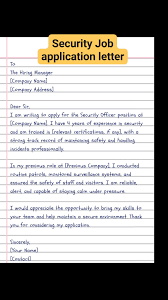 Security Job
application letter
To
The Hiring Manager
[Company Name]
[Company Address]
Dear Sir,
I am writing to apply for the Security Officer position at
[Company Name]. I have 4 years of experience in security
and am trained in [relevant certifications, if any], with a
strong track record of maintaining safety and handling
incidents professionally.
In my previous role at [Previous Company], I conducted
routine patrols, monitored surveillance systems, and
ensured the safety of staff and visitors. I am reliable,
alert, and capable of staying calm under pressure.
I would appreciate the opportunity to bring my skills to
your team and help maintain a secure environment. Thank
you for considering my application.
Sincerely,
[Your Name]
[Contact]